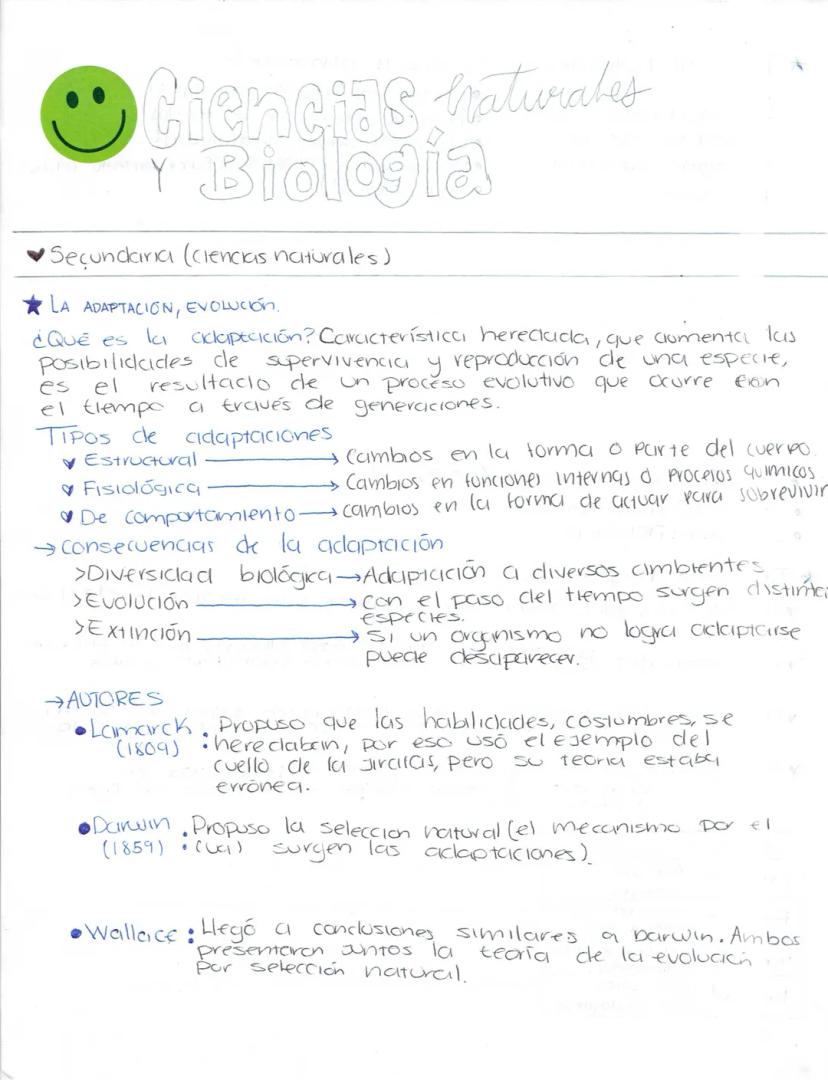 Ciencias naturales
Y Biología
Secundaria (ciencias naturales)
LA ADAPTACIÓN, EVOLUCIÓN.
¿Qué es la adaptación? Característica heredada, que aumenta las
posibilidades de supervivencia y reproducción de una especie,
es el resultado de un proceso evolutivo que ocurre con
el tiempo a través de generaciones.
Tipos de adaptaciones
Estructural → Cambios en la forma o parte del cuerpo
Fisiológica → Cambios en funciones internas o procesos químicos
De comportamiento → cambios en la forma de actuar para sobrevivir
→ consecuencias de la adaptación
>Diversidad biológica → Adaptación a diversos ambientes
>Evolución → con el paso del tiempo surgen distintas
especies.
>Extinción → Si un organismo no logra adaptarse
puede desaparecer.
→ AUTORES
Lamarck : Propuso que las habilidades, costumbres, se
(1809) heredaban, por eso usó el ejemplo del
cuello de la jirafas, pero su teoría estaba
errónea.
Darwin : Propuso la selección natural (el mecanismo por el
(1859) cual surgen las adaptaciones)
Wallace : Llegó a conclusiones similares a Darwin. Ambos
presentaron juntos la teoría de la evolución
por selección natural.